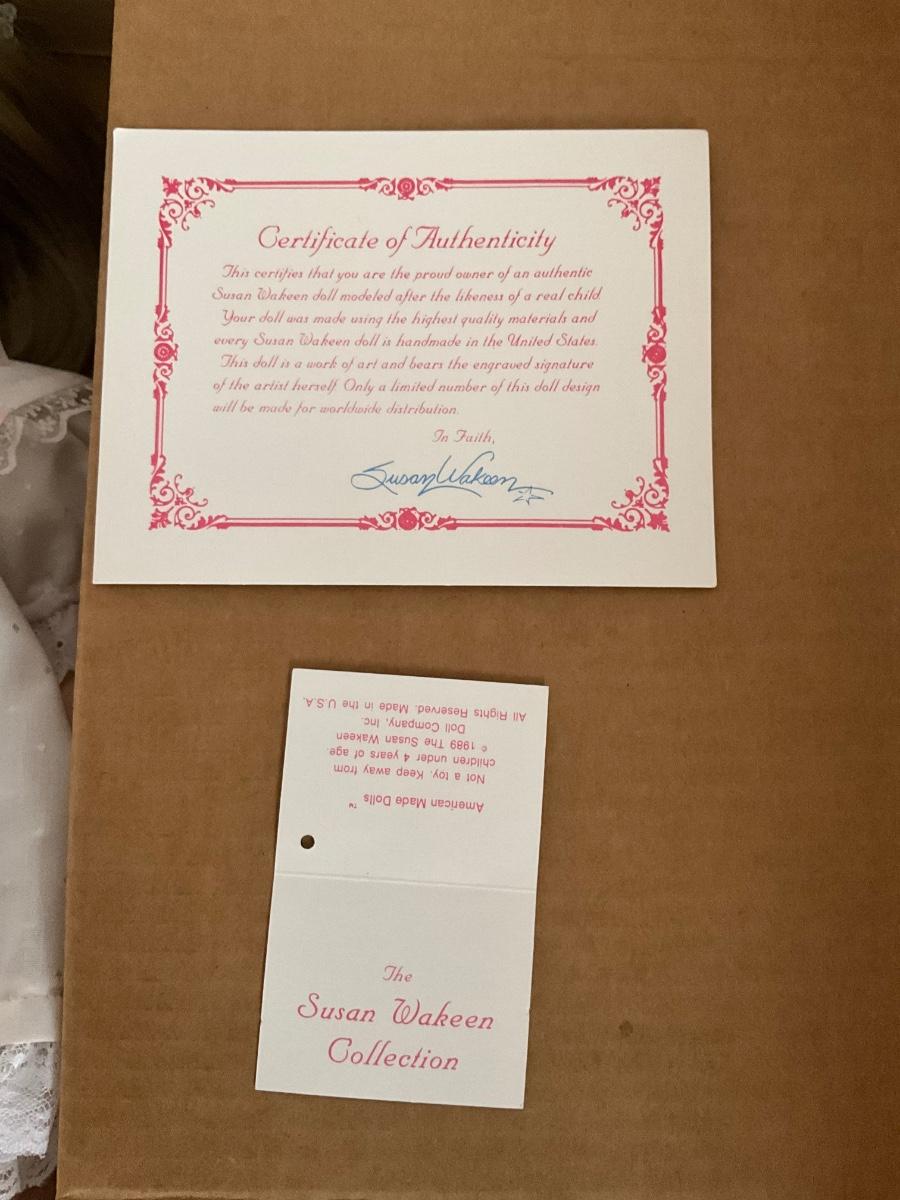 Certificate of Authenticity
This certifies that you are the proud owner of an authentic
Susan Wakeen doll modeled after the likeness of a real child.
Your doll was made using the highest quality materials and
every Susan Wakeen doll is handmade in the United States.
This doll is a work of art and bears the engraved signature
of the artist herself. Only a limited number of this doll design
will be made for worldwide distribution.
In Faith,
Susan Wakeen
American Made Dolls ™
Not a toy. Keep away from
children under 4 years of age.
© 1989 The Susan Wakeen
Doll Company, Inc.
All Rights Reserved. Made in the U.S.A.
The
Susan Wakeen
Collection